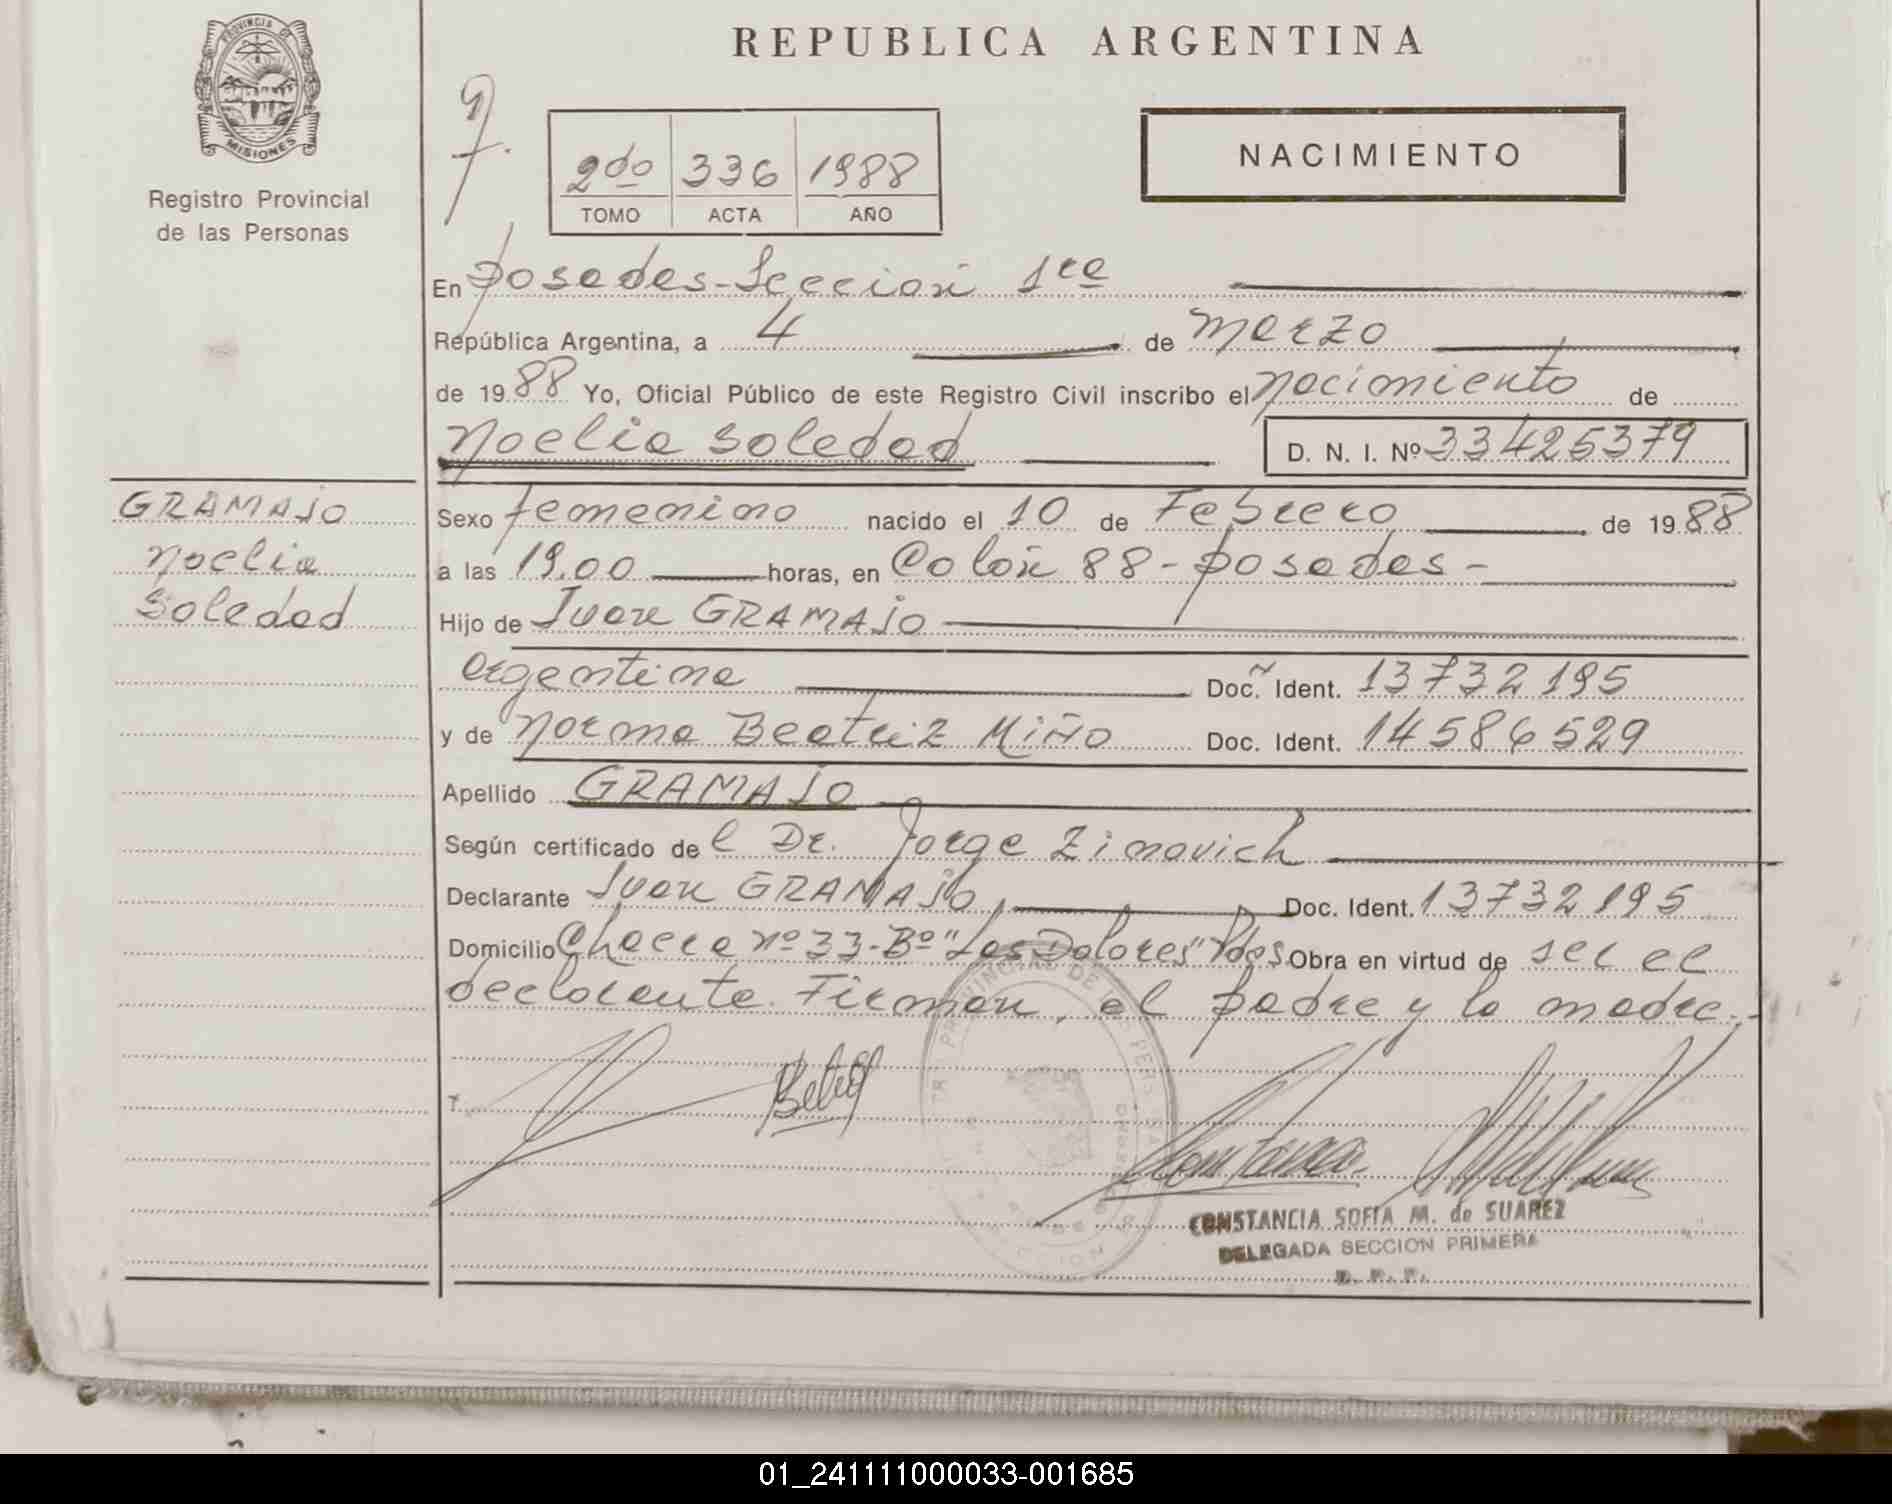 PROVINCIA DE
MISIONES
Registro Provincial
de las Personas
REPUBLICA ARGENTINA
2do 336 1988
TOMO ACTA AÑO
NACIMIENTO
En Posadas-Seccion 1ra
República Argentina, a 4 de Marzo
de 1988 Yo, Oficial Público de este Registro Civil inscribo el Nacimiento de
Noelia Soledad D. N. I. Nº 33425379
GRAMAJO
Noelia
Soledad
Sexo femenino nacido el 10 de Febrero de 1988
a las 19,00 horas, en Colón 88-Posadas-
Hijo de Juan GRAMAJO
argentina Doc. Ident. 13732195
y de Norma Beatriz MIÑO Doc. Ident. 14586529
Apellido GRAMAJO
Según certificado de l Dr. Jorge Zinovich
Declarante Juan GRAMAJO Doc. Ident. 13732195
Domicilio Chacra nº 33-Bº "Los Dolores" Pdas Obra en virtud de ser el
declarante. Firman, el padre y la madre.-
CONSTANCIA SOFIA M. de SUAREZ
DELEGADA SECCION PRIMERA
01_241111000033-001685